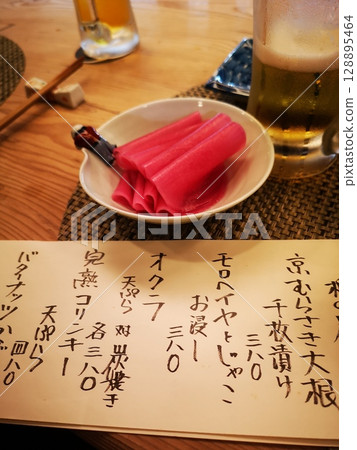 京むらさき大根
千枚漬け
三八〇
モロヘイヤとじゃこ
お浸し
三八〇
オクラ
天ぷら 又は 炭焼き
完熟コリンキー 各三八〇
天ぷら
バターナッツかぼ
四八〇
PIXTA
128895464